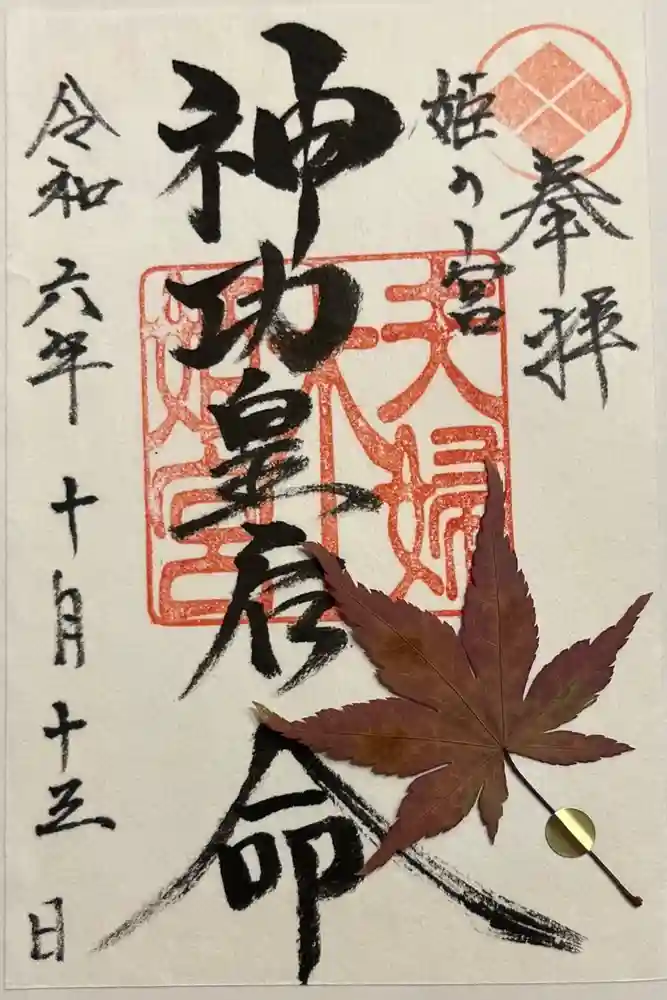 奉拝
姫の宮
神功皇后命
令和六年十月十三日
夫婦
木
姫宮